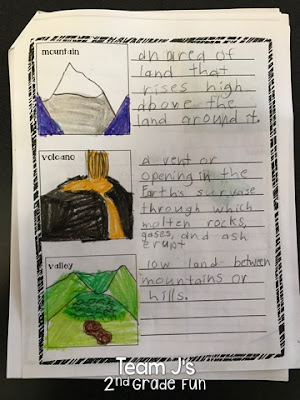 mountain
an area of
land that
rises high
above the
land around it.
volcano
a vent or
opening in the
Earth's survase
through which
molten rocks,
gases, and ash
erupt
valley
low land between
mountains or
hills.
Team J's
2nd Grade Fun